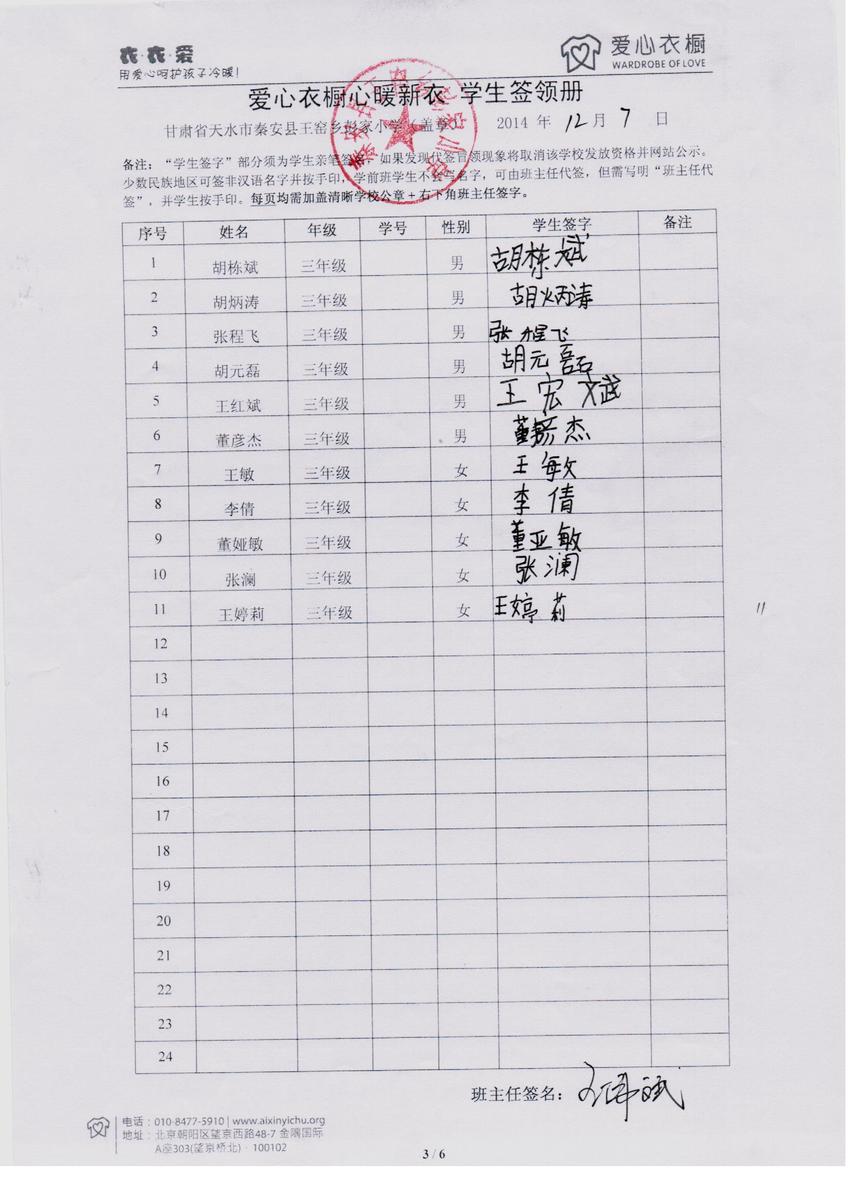 衣·衣·爱
用爱心呵护孩子冷暖!
爱心衣橱
WARDROBE OF LOVE
爱心衣橱心暖新衣 学生签领册
甘肃省天水市秦安县王窑乡彭家小学(盖章) 2014 年 12 月 7 日
备注:“学生签字”部分须为学生亲笔签名,如果发现代签冒领现象将取消该学校发放资格并网站公示。
少数民族地区可签非汉语名字并按手印,学前班学生不会写名字,可由班主任代签,但需写明“班主任代
签”,并学生按手印。每页均需加盖清晰学校公章+右下角班主任签字。
序号 姓名 年级 学号 性别 学生签字 备注
1 胡栋斌 三年级 男 胡栋斌
2 胡炳涛 三年级 男 胡炳涛
3 张程飞 三年级 男 张程飞
4 胡元磊 三年级 男 胡元磊
5 王红斌 三年级 男 王宏斌
6 董彦杰 三年级 男 董彦杰
7 王敏 三年级 女 王敏
8 李倩 三年级 女 李倩
9 董娅敏 三年级 女 董亚敏
10 张澜 三年级 女 张澜
11 王婷莉 三年级 女 王婷莉
11
12
13
14
15
16
17
18
19
20
21
22
23
24
班主任签名:
电话:010-8477-5910 | www.aixinyichu.org
地址:北京朝阳区望京西路48-7 金隅国际
A座303(望京桥北)·100102
3 / 6